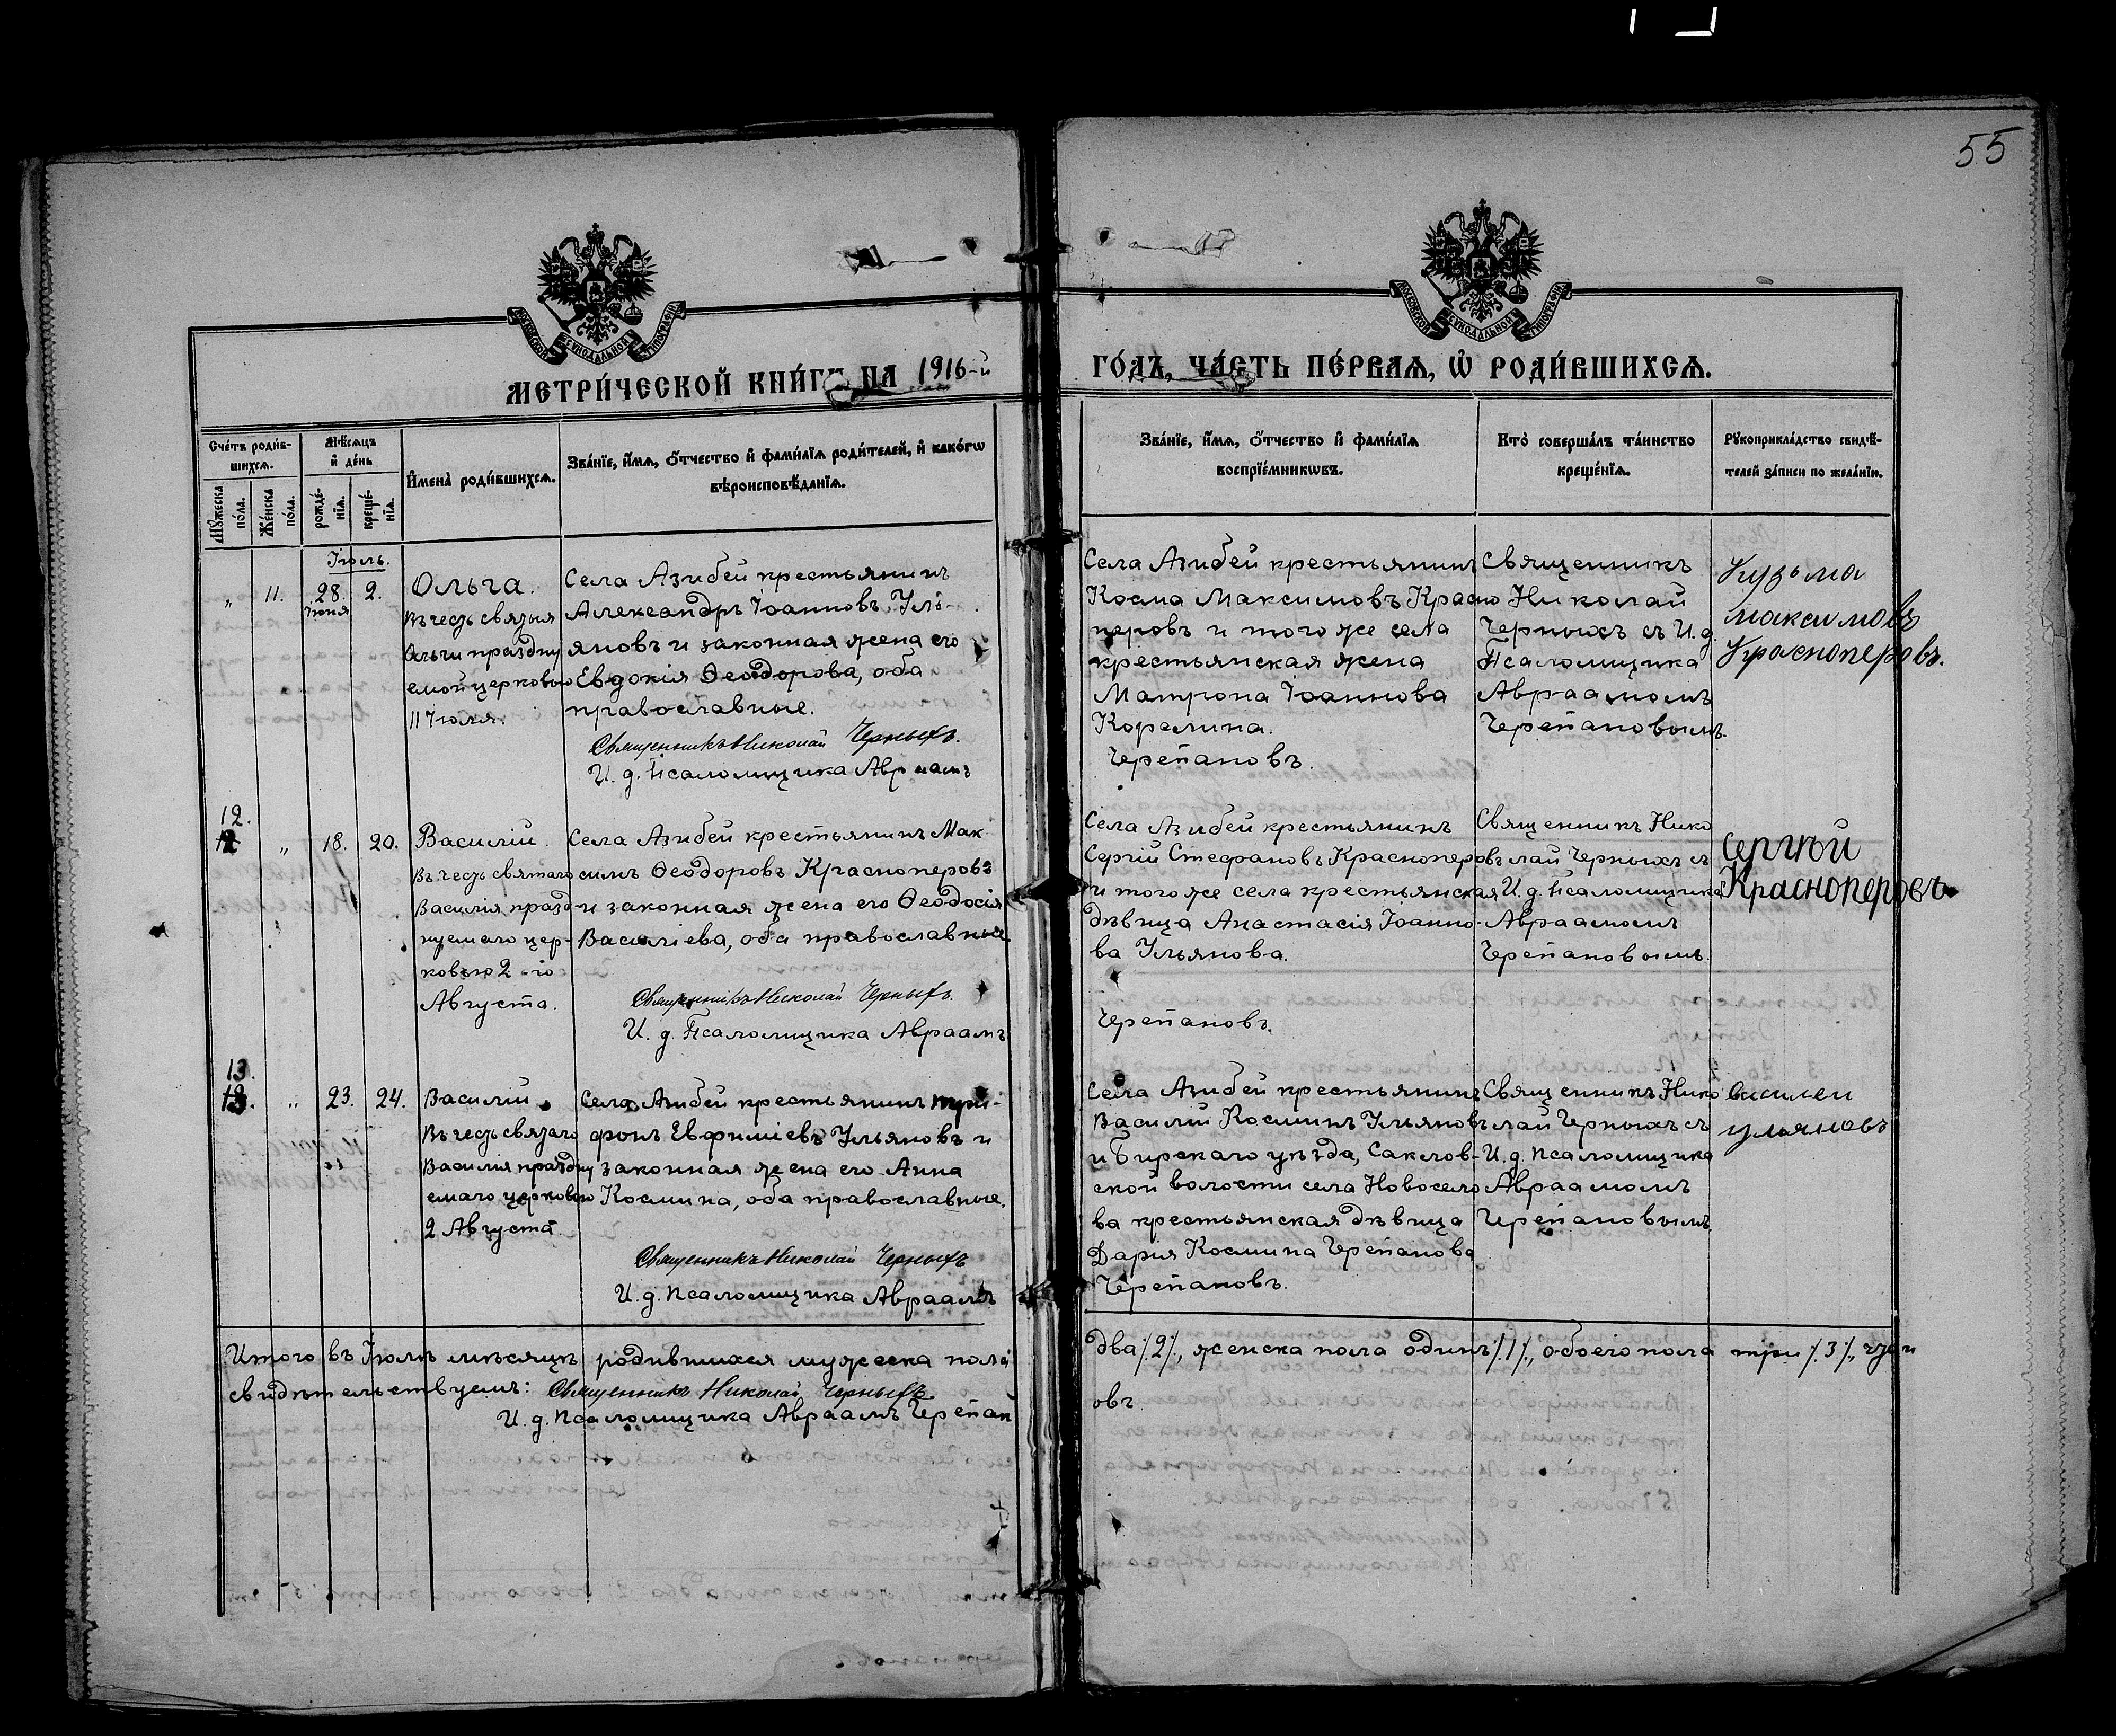 55
МОСКОВСКОЙ СѴНОДАЛЬНОЙ ТИПОГРАФІИ
МОСКОВСКОЙ СѴНОДАЛЬНОЙ ТИПОГРАФІИ
МЕТРИ́ЧЕСКОЙ КНИ́ГИ НА 1916-й
ГО́ДЪ, ЧА́СТЬ ПЕ́РВАѦ, Ѽ РОДИ́ВШИХСѦ.
Сче́тъ роди́в-
шихсѧ.
Мꙋ́жеска по́ла.
Же́нска по́ла.
Мѣ́сѧцъ
и҆ де́нь
рожде́-
нїѧ.
креще́-
нїѧ.
И҆мена̀ роди́вшихсѧ.
Зва́нїе, и҆́мѧ, ѻ҆́тчество и҆ фами́лїѧ роди́телей, и҆ како́гѡ
вѣроисповѣ́данїѧ.
Зва́нїе, и҆́мѧ, ѻ҆́тчество и҆ фами́лїѧ
воспрїе́мникѡвъ.
Кто̀ соверша́лъ та́инство
креще́нїѧ.
Рꙋкоприкла́дство свидѣ́-
телей за́писи по жела́нїю.
Іюль.
„ 11. 28. 2.
Іюня
Ольга.
Въ честь святыя
Ольги праздну
емой церковью
11 Іюля.
Села Азибей крестьянинъ
Александръ Іоанновъ Уль-
яновъ и законная жена его
Евдокія Ѳеодорова, оба
православные.
Священникъ Николай Черныхъ.
И. д. Псаломщика Авраамъ
Села Азибей крестьянинъ
Косма Максимовъ Красно
перовъ и того же села
крестьянская жена
Матрона Іоаннова
Корелина.
Черепановъ.
Священникъ
Николай
Черныхъ съ И. д.
Псаломщика
Авраамомъ
Черепановымъ.
Кузьма
максимовъ
Красноперовъ.
12.
„ 18. 20.
Василій.
Въ честь святаго
Василія празд
нуемаго цер-
ковью 2-го
Августа.
Села Азибей крестьянинъ Мак
симъ Ѳеодоровъ Красноперовъ
и законная жена его Ѳеодосія
Васильева, оба православные
Священникъ Николай Черныхъ.
И. д. Псаломщика Авраамъ
Села Азибей крестьянинъ
Сергій Стефановъ Красноперовъ
и того же села крестьянская
дѣвица Анастасія Іоанно-
ва Ульянова.
Черепановъ.
Священникъ Нико
лай Черныхъ съ
И. д. Псаломщика
Авраамомъ
Черепановымъ.
Сергѣй
Красноперовъ
13.
„ 23. 24.
Василій
Въ честь святаго
Василія праздну
емаго церковью
2 Августа.
Села Азибей крестьянинъ Три-
фонъ Евфиміевъ Ульяновъ и
законная жена его Анна
Космина, оба православные.
Священникъ Николай Черныхъ
И. д. Псаломщика Авраамъ
Села Азибей крестьянинъ
Василій Косминъ Ульяновъ
и Бирскаго уѣзда, Саклов-
ской волости села Новосело
ва крестьянская дѣвица
Дарія Космина Черепанова
Черепановъ.
Священникъ Нико
лай Черныхъ съ
И. д. псаломщика
Авраамомъ
Черепановымъ.
василеи
ульяновъ
Итого въ Іюлѣ мѣсяцѣ родившихся мужеска пола два /.2/., женска пола одинъ /.1/., обоего пола три /.3/., что и
свидѣтельствуемъ: Священникъ Николай Черныхъ.
И. д. псаломщика Авраамъ Черепан
овъ.